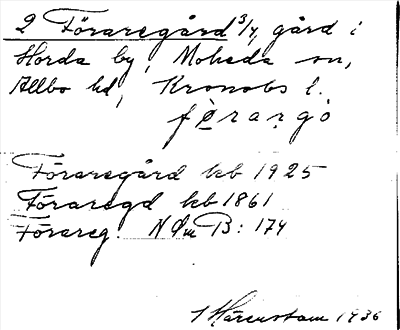 2 Föraregård 3/4, gård i
Horda by, Moheda sn,
Allbo hd, Kronobs l.
førargö
Föraregård kb 1925
Föraregd kb 1861
Förareg. NOm B: 174
Härenstam 1936